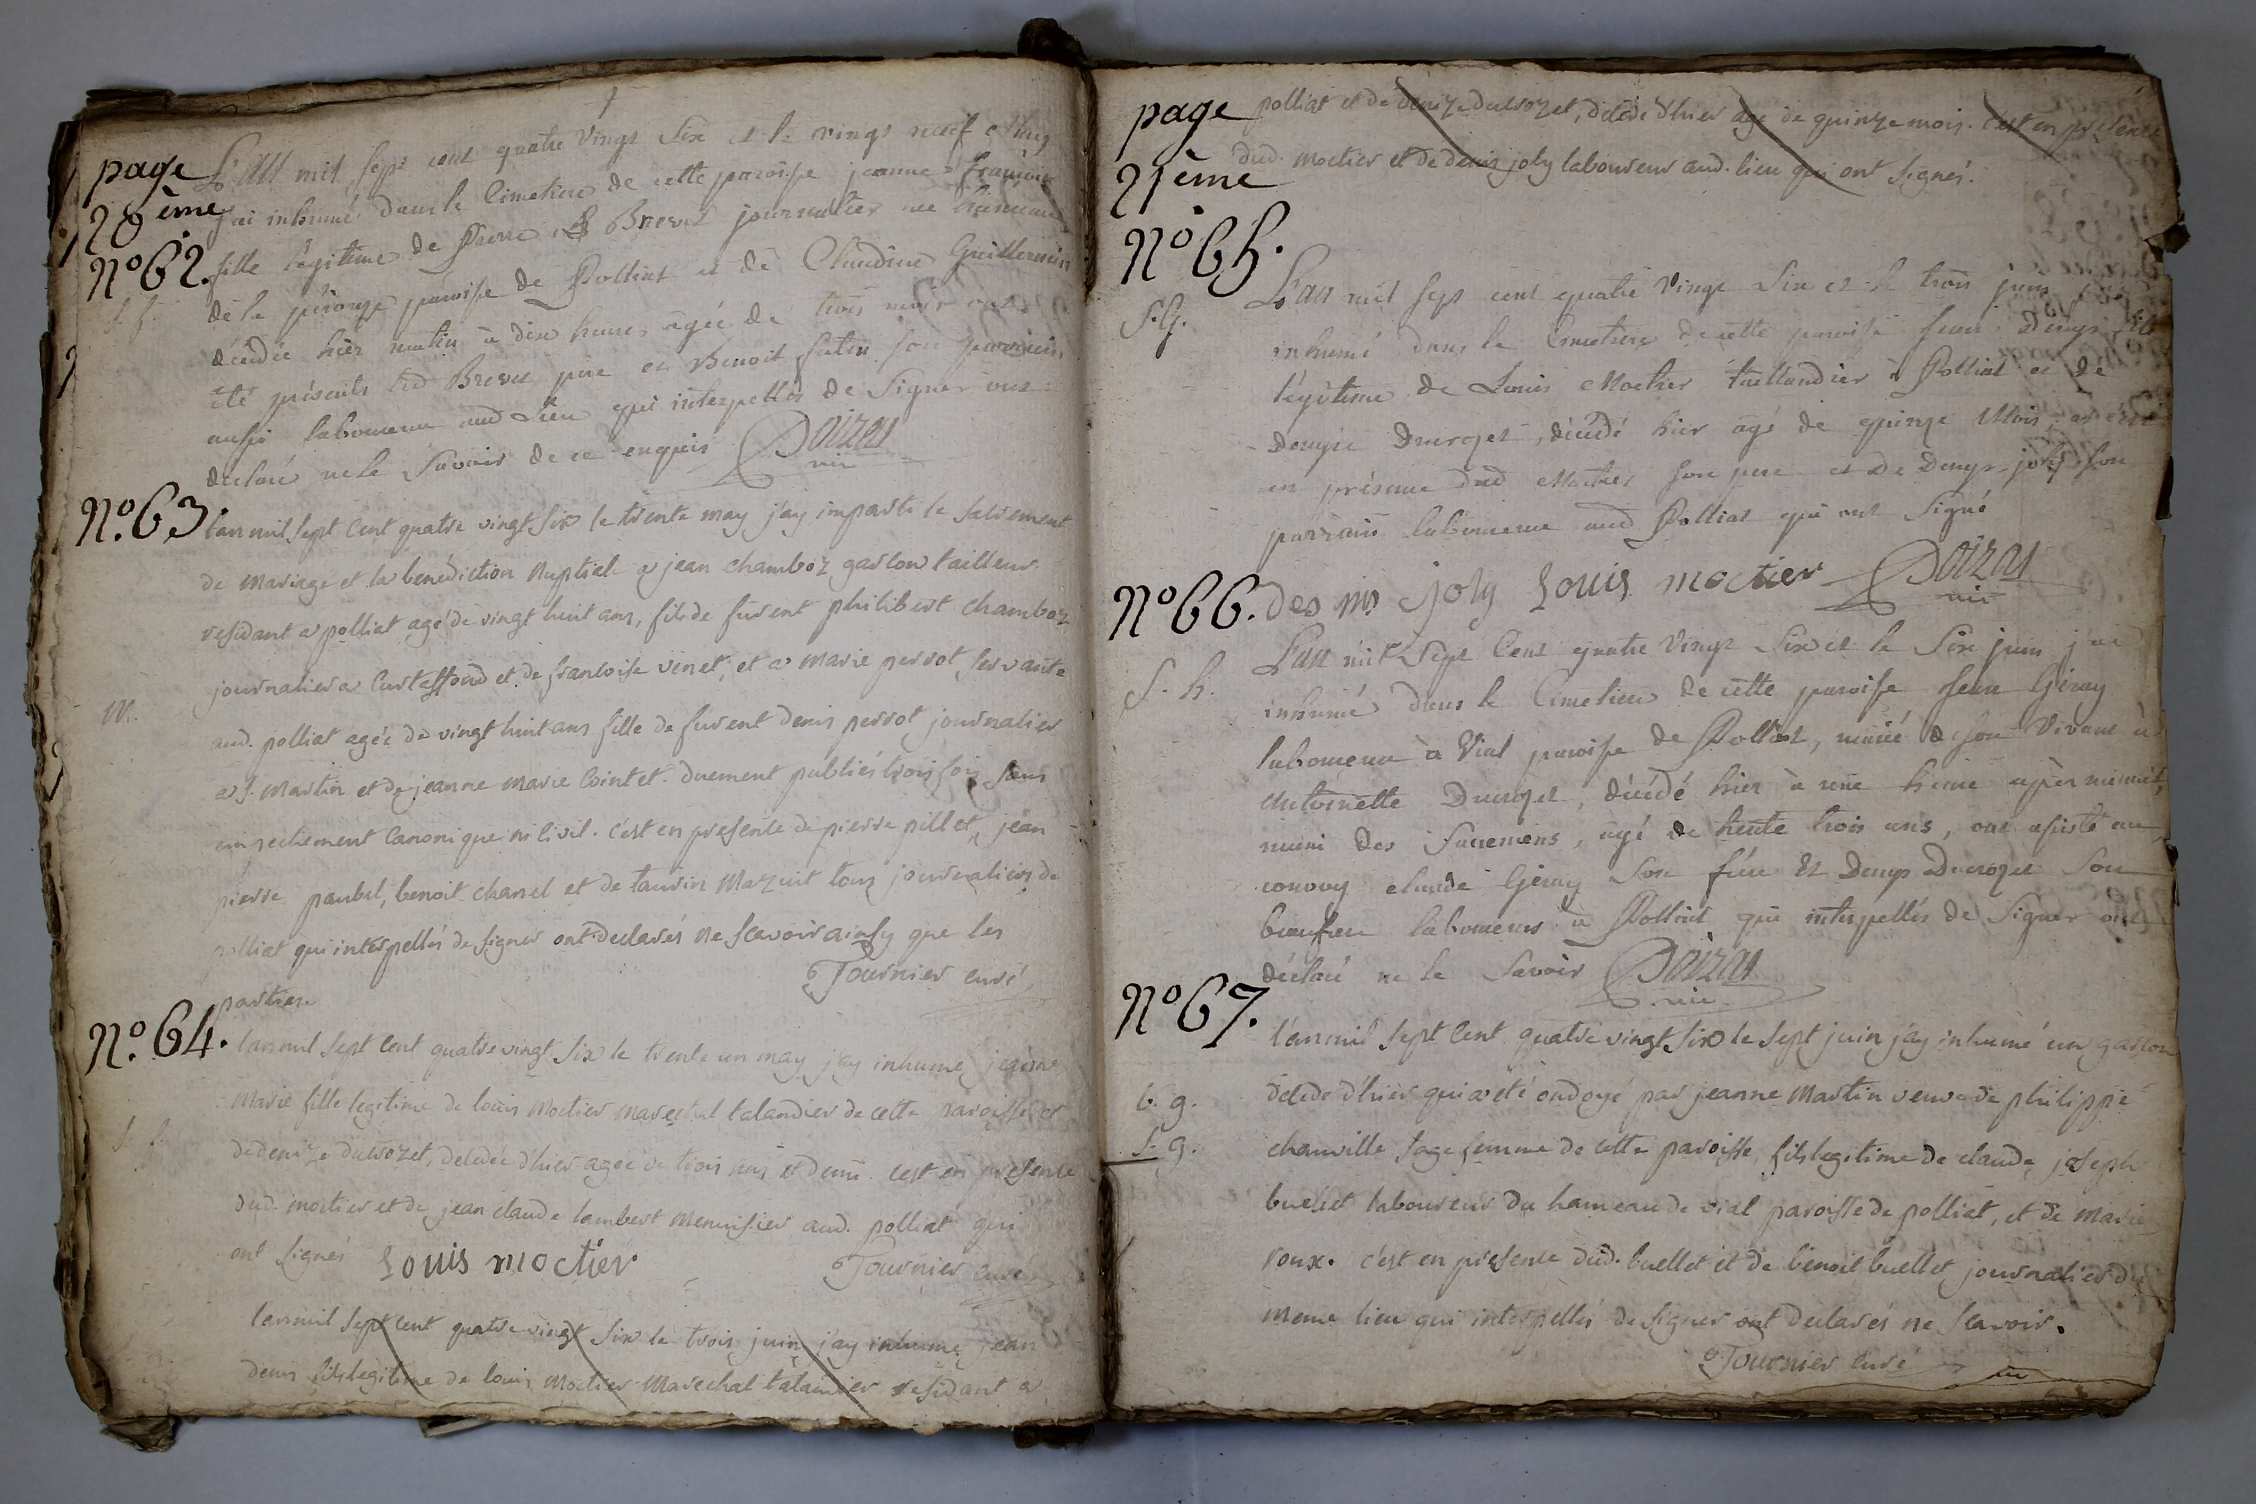 page
20ème
L'an mil sept cent quatre vingt six et le vingt neuf May
j'ai inhumé dans le Cimetiere de cette paroisse jeanne françoise
N° 62.
fille légitime de Pierre Brevet journalier au hameau
S. f.
de la perouze paroisse de Polliat et de Claudine Guillermin
décédée hier matin à dix heures agée de trois mois ont
été présents lud Brevet père et Benoit futin son parrain
aussi laboureur aud Lieu qui interpellés de Signer ont
déclaré ne le Savoir de ce enquis Doizat
vic
N°. 63
l'an mil sept Cent quatre vingt six le trente may j'ay imparti le sacrement
de mariage et la benediction nuptiale a jean chamboz garcon tailleur
residant a polliat agé de vingt huit ans, fils de furent philibert chamboz
journalier a Curtaffond et de francoise venet, et a marie perrot servante
m.
aud. polliat agée de vingt huit ans fille de furent denis perrot journalier
a S. Martin et de jeanne marie Cointet. duement publiés trois fois sans
empechement Canonique ni Civil. c'est en presence de pierre pillet, jean
pierre paubel, benoit chanel et de taurin mazuit tous journaliers de
polliat qui interpellés de signer ont declarés ne scavoir ainsy que les
parties. Tournier curé
N°. 64.
l'an mil sept cent quatre vingt six le trente un may j'ay inhumé jeanne
Marie fille legitime de louis moctier marechal talandier de cette paroisse et
S. f.
de denize ducrozet, decedée d'hier agée de trois ans et demi. c'est en presence
dud. moctier et de jean claude lambert menuisier aud. polliat qui
ont signés Louis moctier Tournier curé
l'an mil sept cent quatre vingt six le trois juin j'ay inhumé jean
denis fils legitime de louis moctier marechal talandier residant a
page
21ème
polliat et de denize ducrozet, decedé d'hier agé de quinze mois. c'est en presence
dud. moctier et de denis joly laboureur aud. lieu qui ont signés.
N° 65.
L'an mil sept cent quatre vingt six et le trois juin j'ai
S. G.
inhumé dans le Cimetiere de cette paroisse jean Denys fils
légitime de Louis Moctier taillandier à Polliat et de
Denyse Ducrozet, décédé hier agé de quinze Mois, à été
en présence dud Moctier son pere et de Denys joly son
parrain laboureur aud Polliat qui ont Signé
des nis joly Louis moctier Doizat
vic
N° 66.
L'an mil Sept Cent quatre Vingt Six et le Six juin j'ai
S. h.
inhumé dans le Cimetiere de cette paroisse jean Geray
laboureur à Vial paroisse de Polliat, marié de son Vivant à
Antoinette Ducrozet, décédé hier à une heure après minuit,
muni des Sacremens, agé de trente trois ans, ont assisté au
convoy claude Geray son frere et Denys Ducrozet son
beaufrere laboureurs à Polliat qui interpellés de Signer ont
déclaré ne le Savoir Doizat
vic
N° 67.
l'an mil sept Cent quatre vingt six le sept juin j'ay inhumé un garcon
b. g.
decedé d'hier qui a eté ondoyé par jeanne Martin veuve de philippe
S. g.
chanville sage femme de cette paroisse, fils legitime de claude joseph
buellet laboureur du hameau de vial paroisse de polliat, et de marie
roux. c'est en presence dud. buellet et de benoit buellet journalier du
meme lieu qui interpellés de signer ont declarés ne scavoir.
Tournier curé